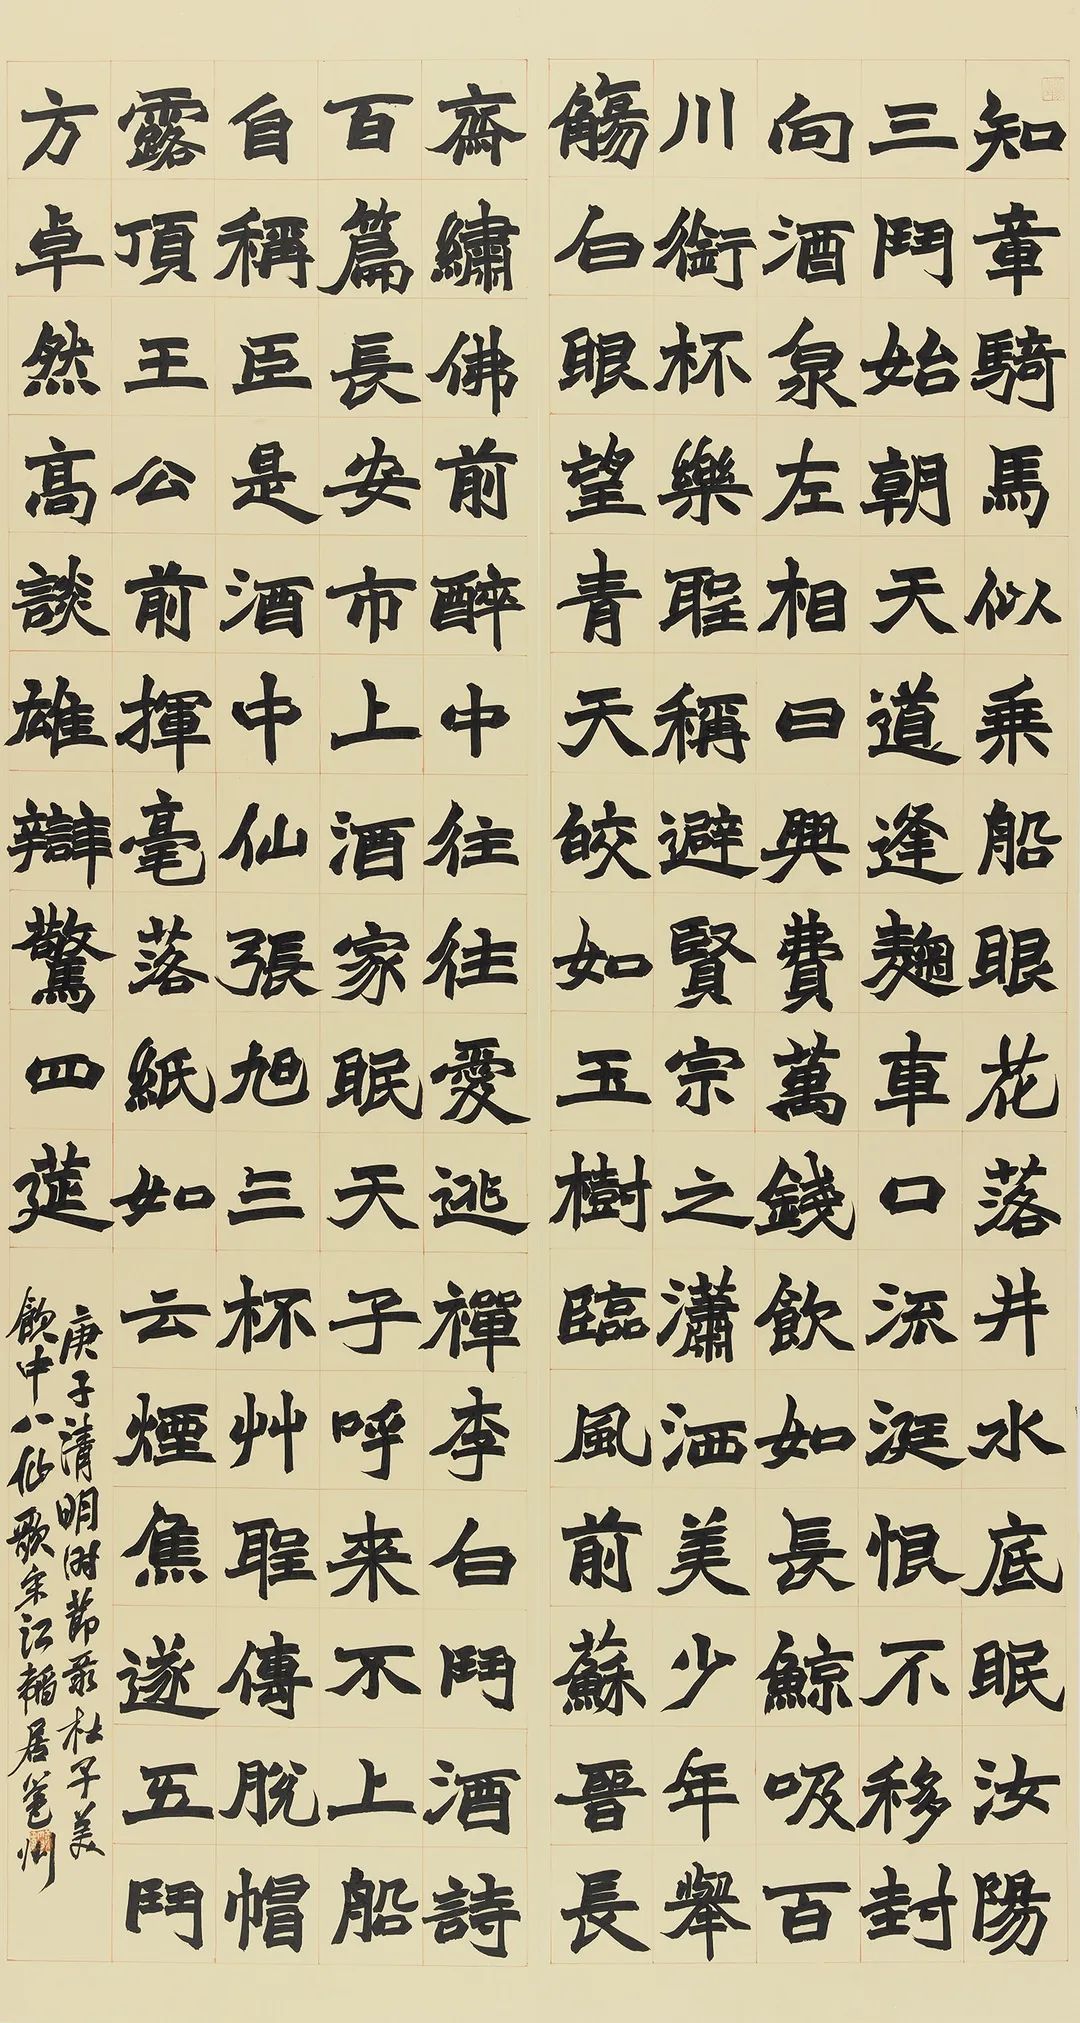 知章騎馬似乘船眼花落井水底眠汝陽
三鬥始朝天道逢麴車口流涎恨不移封
向酒泉左相日興費萬錢飲如長鯨吸百
川銜杯樂聖稱避賢宗之瀟洒美少年舉
觴白眼望青天皎如玉樹臨風前蘇晉長
齋繡佛前醉中往往愛逃禪李白鬥酒詩
百篇長安市上酒家眠天子呼来不上船
自稱臣是酒中仙張旭三杯艸聖傳脫帽
露頂王公前揮毫落紙如云煙焦遂五鬥
方卓然高談雄辯驚四莚
庚子清明時節录杜子美
飲中八仙歌江韜居邕州